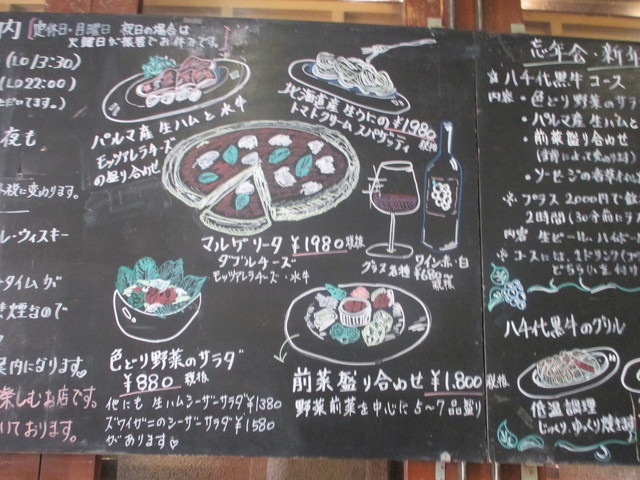 内 定休日・月曜日 祝日の場合は
火曜日が振替でお休みです。
(LO 13:30)
(LO 22:00)
夜も
に変わります。
ル・ウィスキー
タイムが
禁煙なので
案内になります。
楽しむお店です。
いております。
パルマ産 生ハムと 水牛
モッツァレラチーズ
の盛り合わせ
北海道産 生うにの ¥1980 税抜
トマトクリーム スパゲッティ
マルゲリータ ¥1980 税抜
ダブルチーズ
モッツァレラチーズ・水牛
グラス
ワイン 赤・白
¥680〜
税抜
色どり野菜のサラダ
¥880 税抜
他にも 生ハムシーザーサラダ ¥1380
ズワイガニのシーザーサラダ ¥1580
があります♡
前菜盛り合わせ ¥1.800 税抜
野菜前菜を中心に 5〜7品盛り
忘年会・新年
☆八千代黒牛コース
内容 ・色どり野菜のサラ
・パルマ産 生ハムと
・前菜盛り合わせ
・ソーセージの香草
※ プラス 2000円で飲
2時間(30分前にラ
内容 生ビール、ハイボー
※コースには、1ドリンク
八千代黒牛のグリル
低温調理
じっくり、ゆっくり焼きます